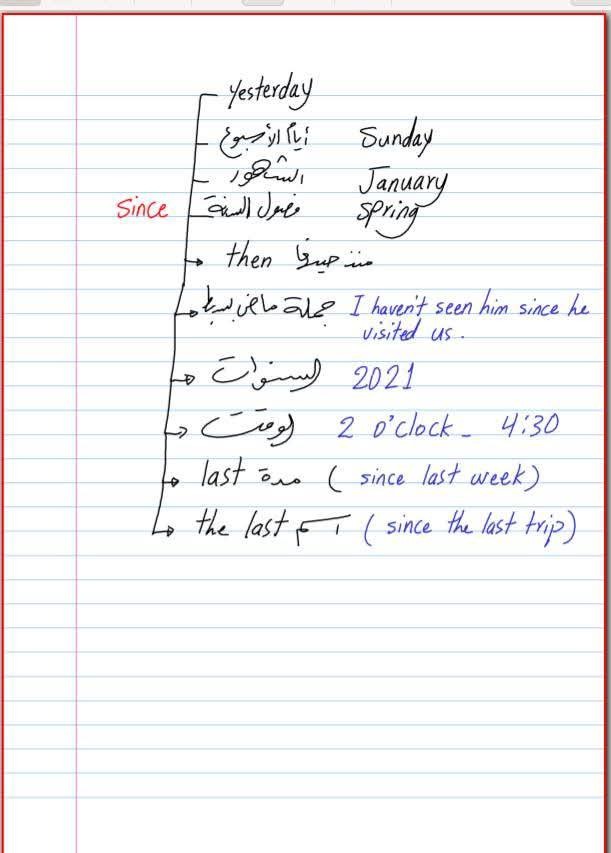 Yesterday
أيام الأسبوع Sunday
الشهور January
Since فصول السنة spring
then منذ حينها
جملة ماضى بسيط I haven't seen him since he
visited us.
السنوات 2021
الوقت 2 o'clock - 4:30
last مدة ( since last week)
the last اسم ( since the last trip)